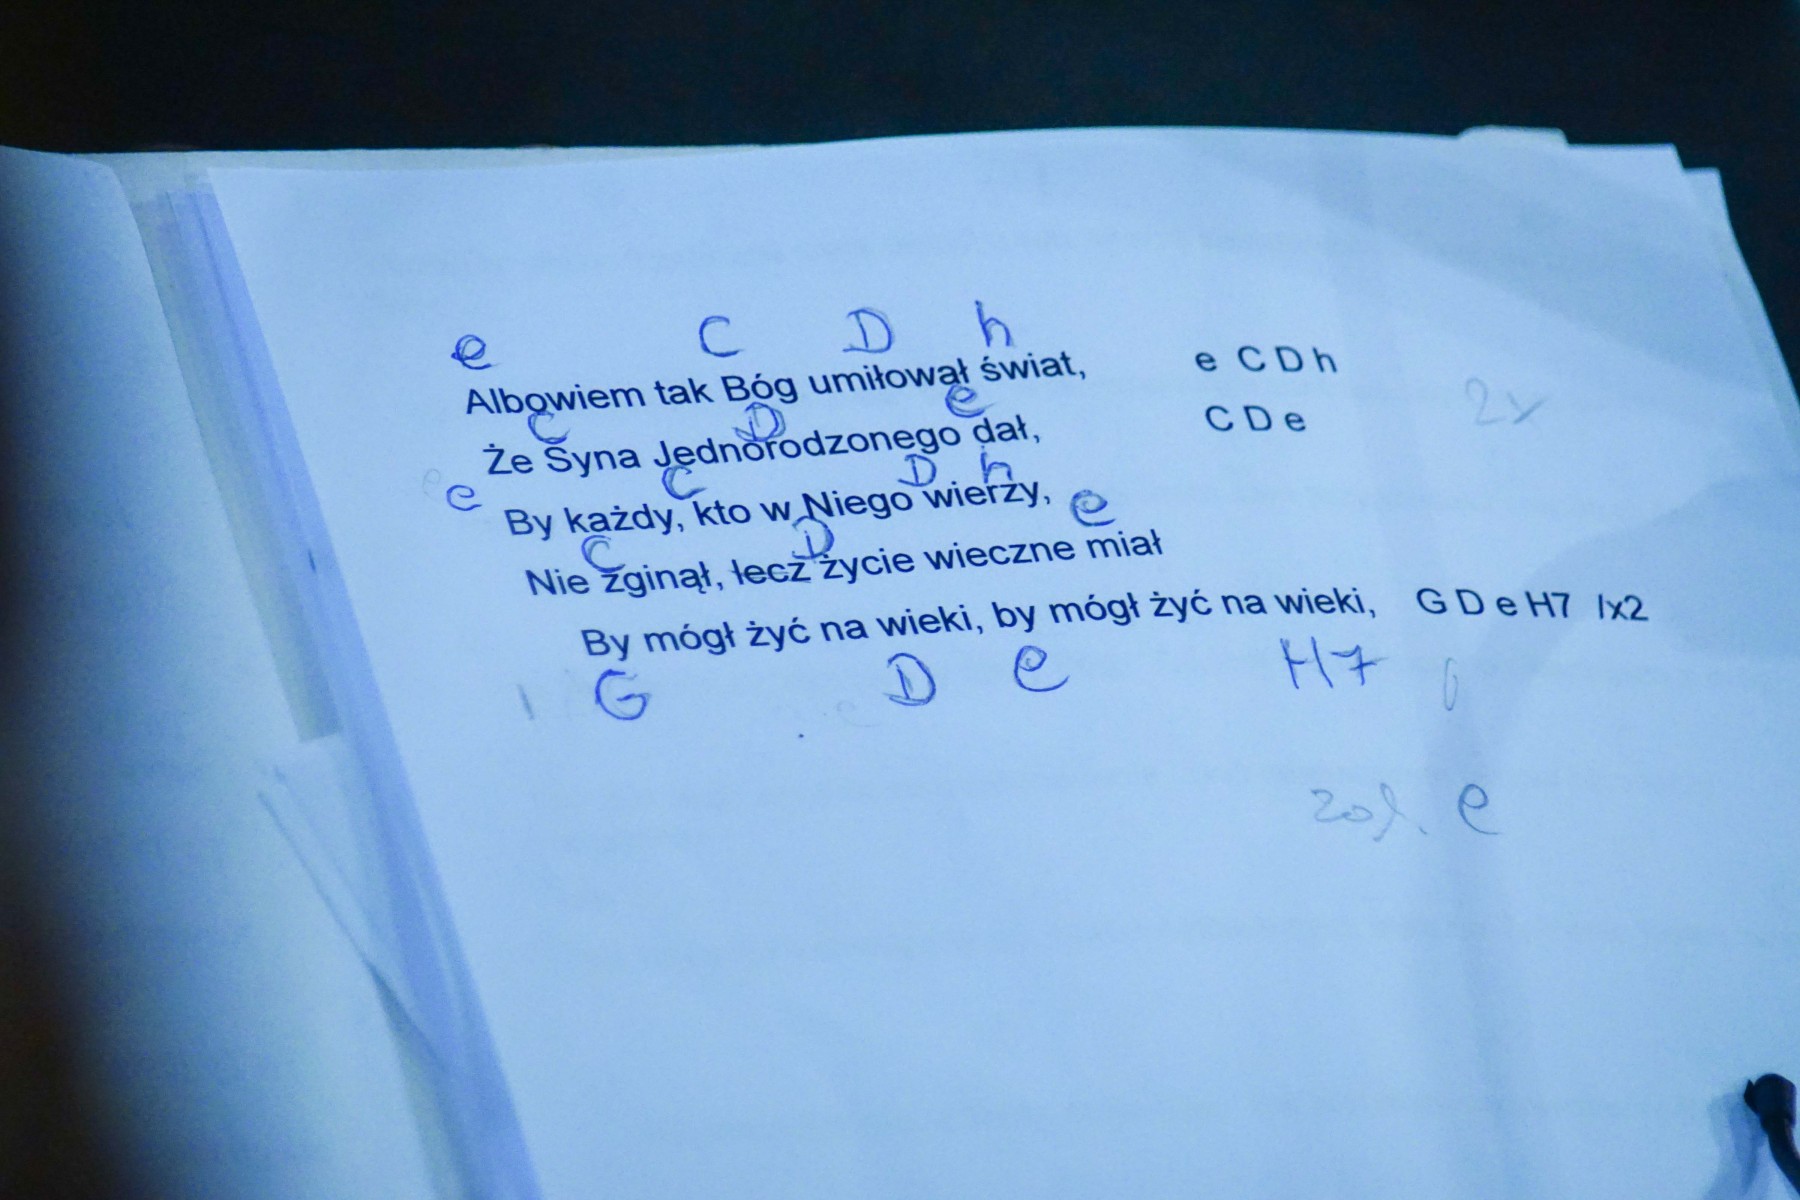 e C D h
Albowiem tak Bóg umiłował świat, e C D h
C D e
Że Syna Jednorodzonego dał, C D e 2x
e C D h
By każdy, kto w Niego wierzy,
C D e
Nie zginął, lecz życie wieczne miał
By mógł żyć na wieki, by mógł żyć na wieki, G D e H7 /x2
G D e H7
e